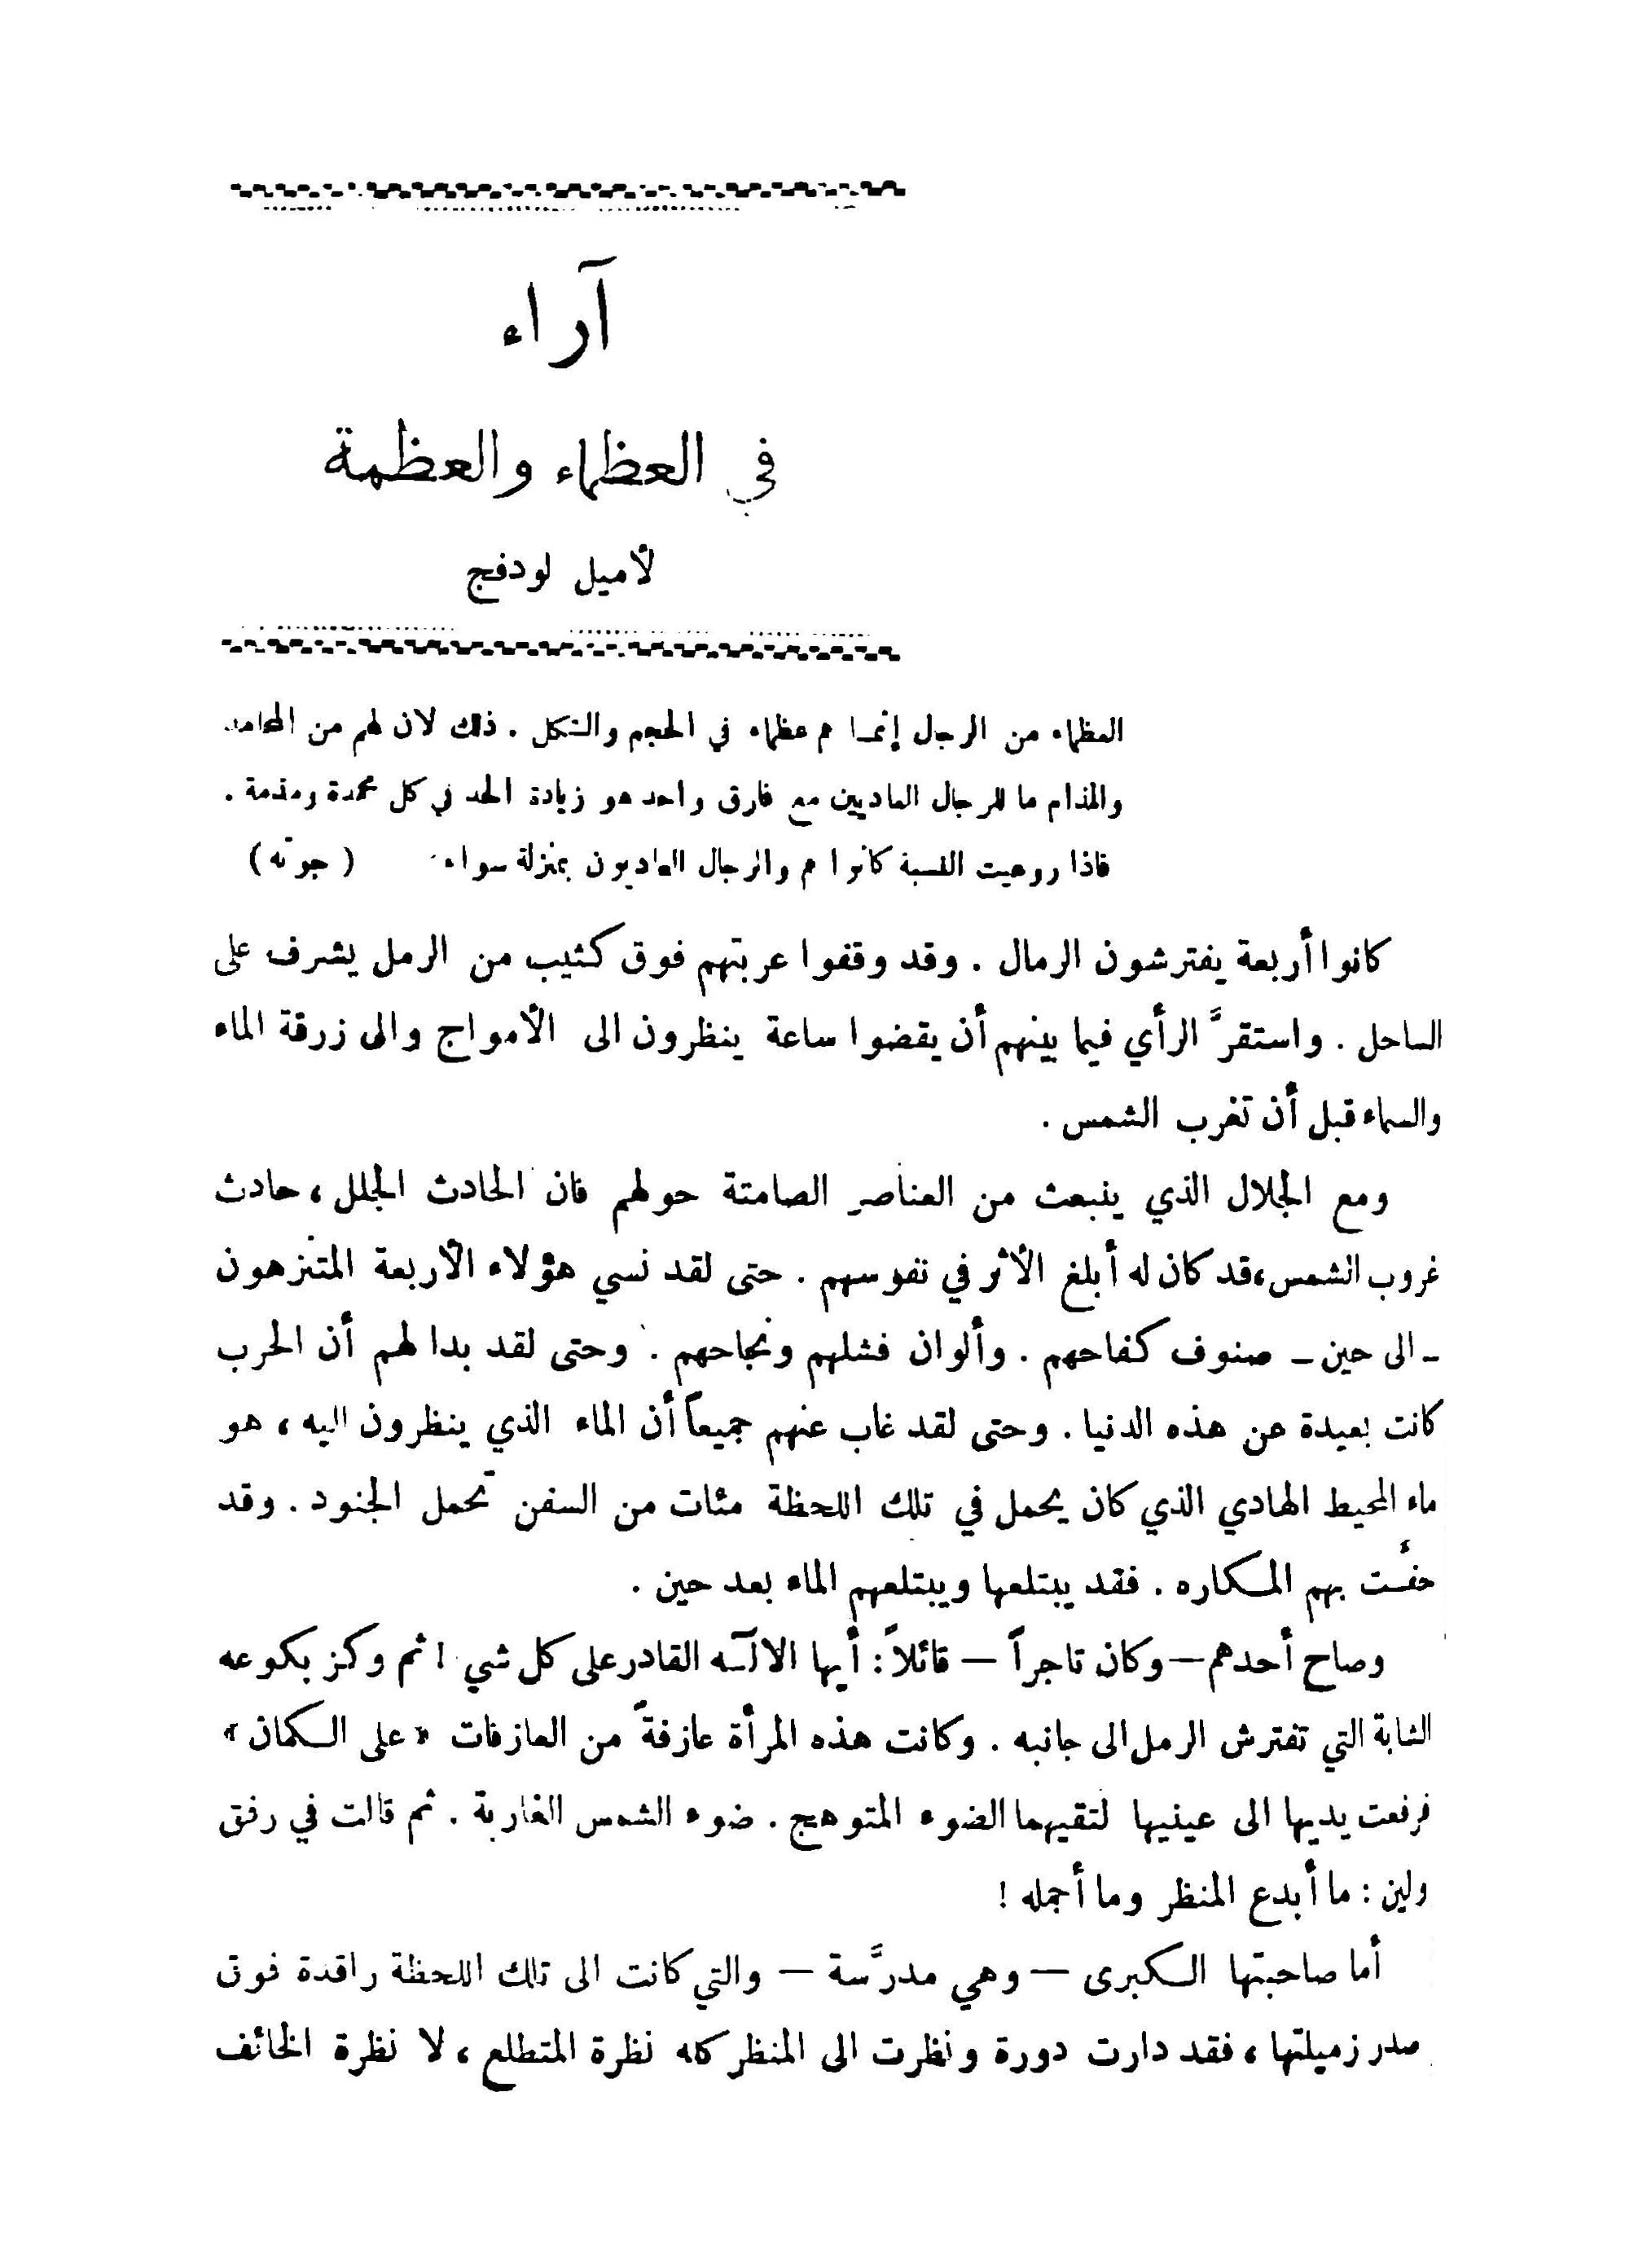 آراء
في العظماء والعظمة
لأميل لودفج
العظماء من الرجال إنما هم عظماء في الحجم والشكل . ذلك لان لهم من المحامد
والمذام ما للرجال العاديين مع فارق واحد هو زيادة الحد في كل محمدة ومذمة .
فاذا روعيت النسبة كانوا هم والرجال العاديون بمنزلة سواء (جوته)
كانوا أربعة يفترشون الرمال . وقد وقفوا عربتهم فوق كثيب من الرمل يشرف على
الساحل . واستقرَّ الرأي فيما بينهم أن يقضوا ساعة ينظرون الى الأمواج والى زرقة الماء
والسماء قبل أن تغرب الشمس .
ومع الجلال الذي ينبعث من العناصر الصامتة حولهم فان الحادث الجلل ، حادث
غروب الشمس ، قد كان له أبلغ الأثر في نفوسهم . حتى لقد نسي هؤلاء الأربعة المتنزهون
ـ الى حين ـ صنوف كفاحهم . وألوان فشلهم ونجاحهم . وحتى لقد بدا لهم أن الحرب
كانت بعيدة عن هذه الدنيا . وحتى لقد غاب عنهم جميعاً أن الماء الذي ينظرون اليه ، هو
ماء المحيط الهادي الذي كان يحمل في تلك اللحظة مئات من السفن تحمل الجنود . وقد
حفُّت بهم المكاره . فقد يبتلعها ويبتلعهم الماء بعد حين .
وصاح أحدهم — وكان تاجراً — قائلاً : أيها الالآه القادر على كل شي ! ثم وكز بكوعه
الشابة التي تفترش الرمل الى جانبه . وكانت هذه المرأة عازفةً من العازفات «على الكمان»
فرفعت يديها الى عينيها لتقيهما الضوء المتوهج . ضوء الشمس الغاربة . ثم قالت في رفق
ولين : ما أبدع المنظر وما أجمله !
أما صاحبتها الكبرى — وهي مدرَّسة — والتي كانت الى تلك اللحظة راقدة فوق
صدر زميلتها ، فقد دارت دورة ونظرت الى المنظر كله نظرة المتطلع ، لا نظرة الخائف